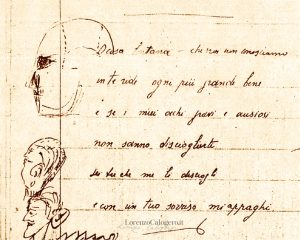 Cara lontana che non conosciamo
in te vide ogni più grande bene
e se i miei occhi gravi e ansiosi
non sanno, discioglierti
sei tu che me li disciogli
e con un tuo sorriso mi appaghi
LorenzoCalogero.it